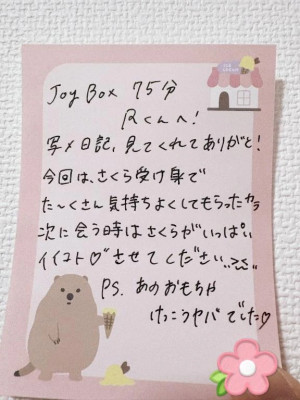 Joy Box 75分
Rくんへ!
写メ日記、見てくれてありがと!
今回は、さくら受け身で
た〜くさん気持ちよくしてもらったカラ
次に会う時はさくらがいっぱい
イイコト♡させてください
PS. あのおもちゃ
けっこうヤバでした♡